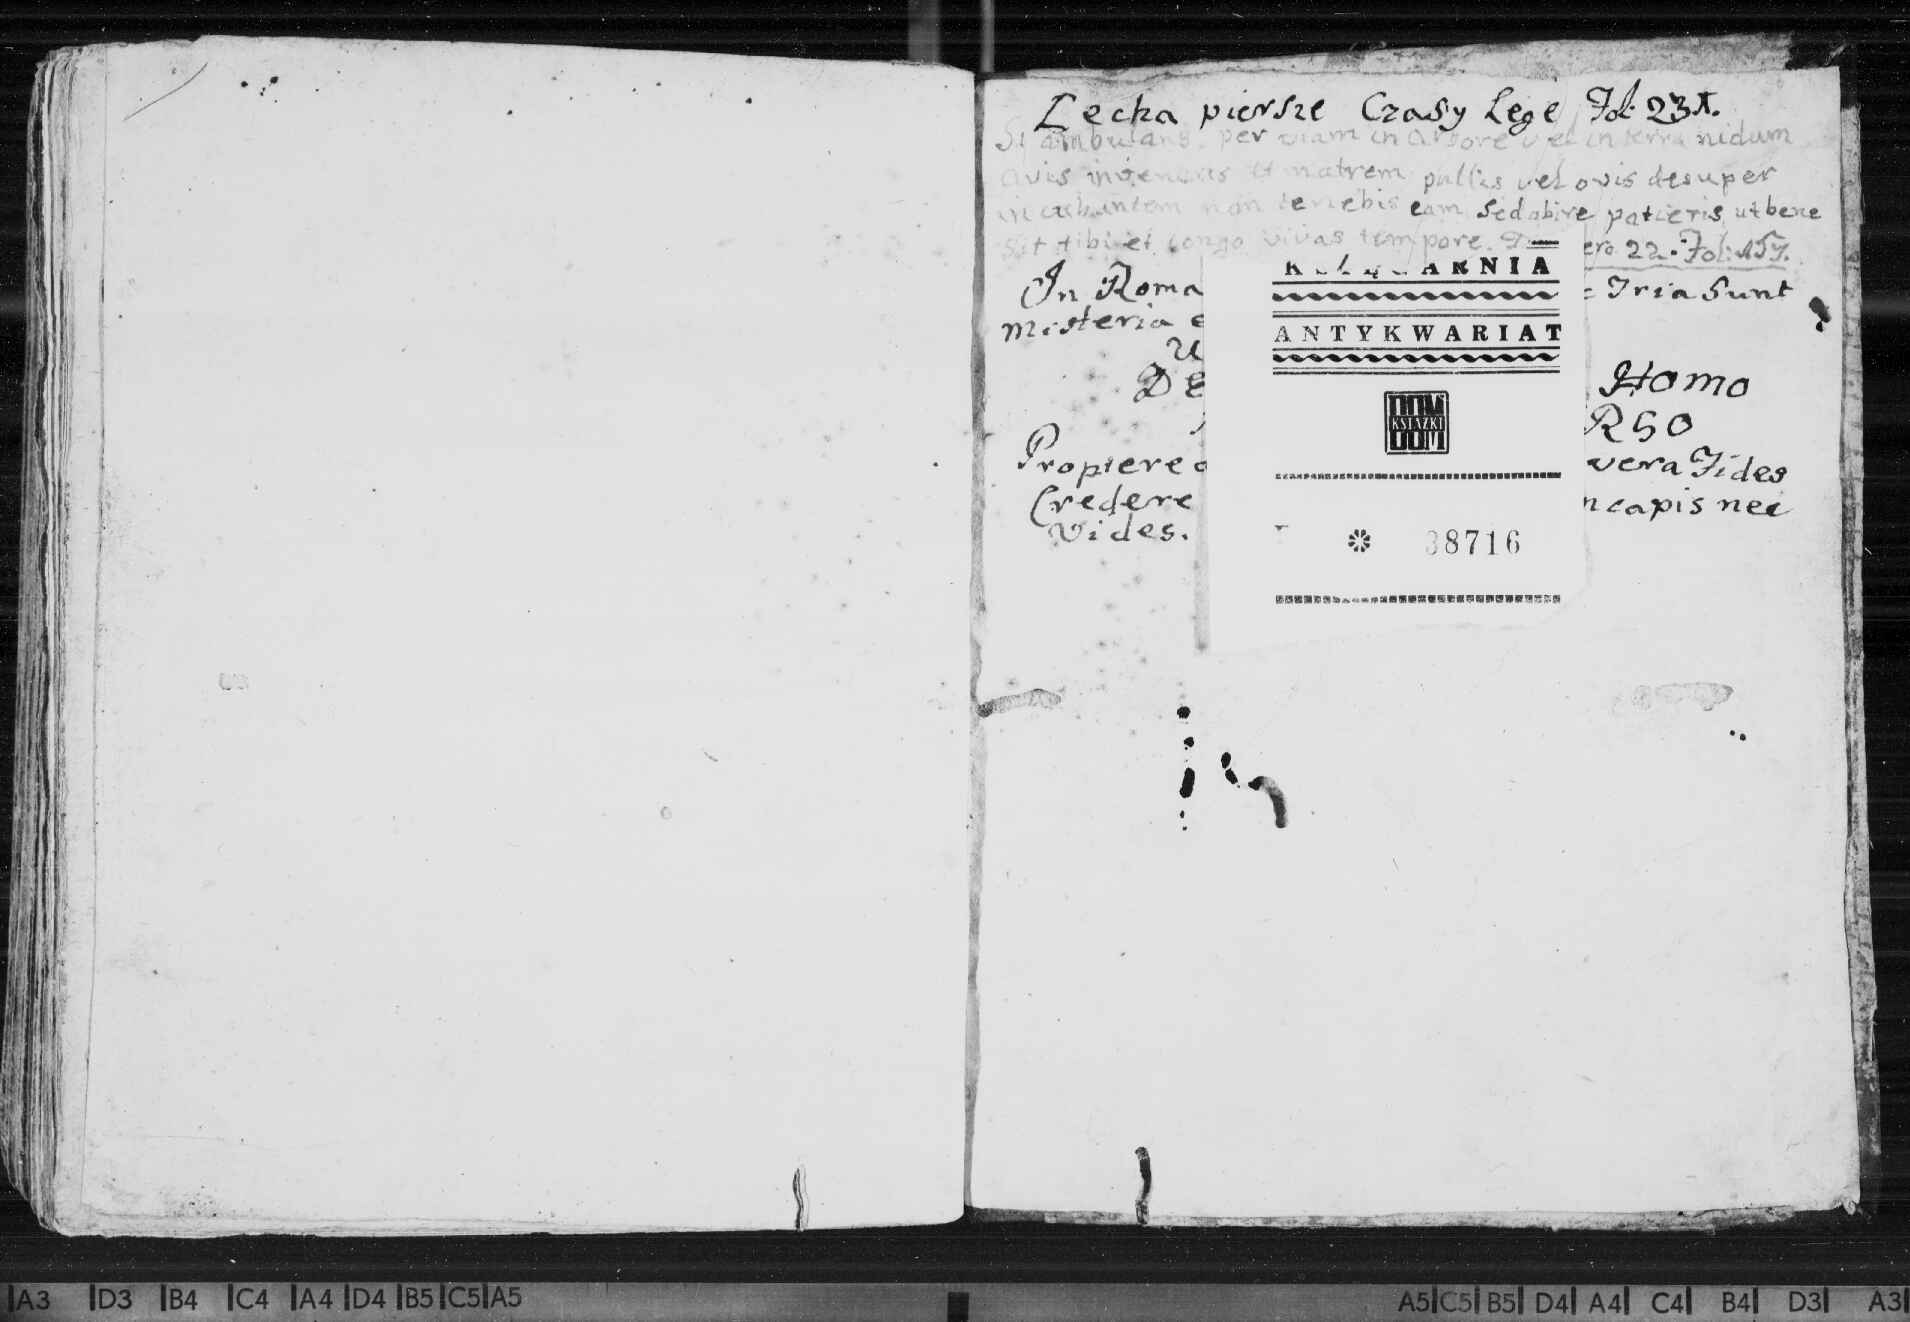 Lecha piersze Czasy Lege Fol: 231.
Si ambulans per viam in arbore vel in terra nidum
avis inveneris et matrem pullis vel ovis desuper
incubantem non tenebis eam sed abire patieris ut bene
Sit tibi et longo vivas tempore. 22. Fol: 157.
In Roma Tria Sunt
misteria
DE Homo
RGO
Propterea vera Fides
Credere capis nec
Vides.
KSIĘGARNIA
ANTYKWARIAT
DOM
KSIĄŻKI
DOM
38716
A3 D3 B4 C4 A4 D4 B5 C5 A5
A5 C5 B5 D4 A4 C4 B4 D3 A3